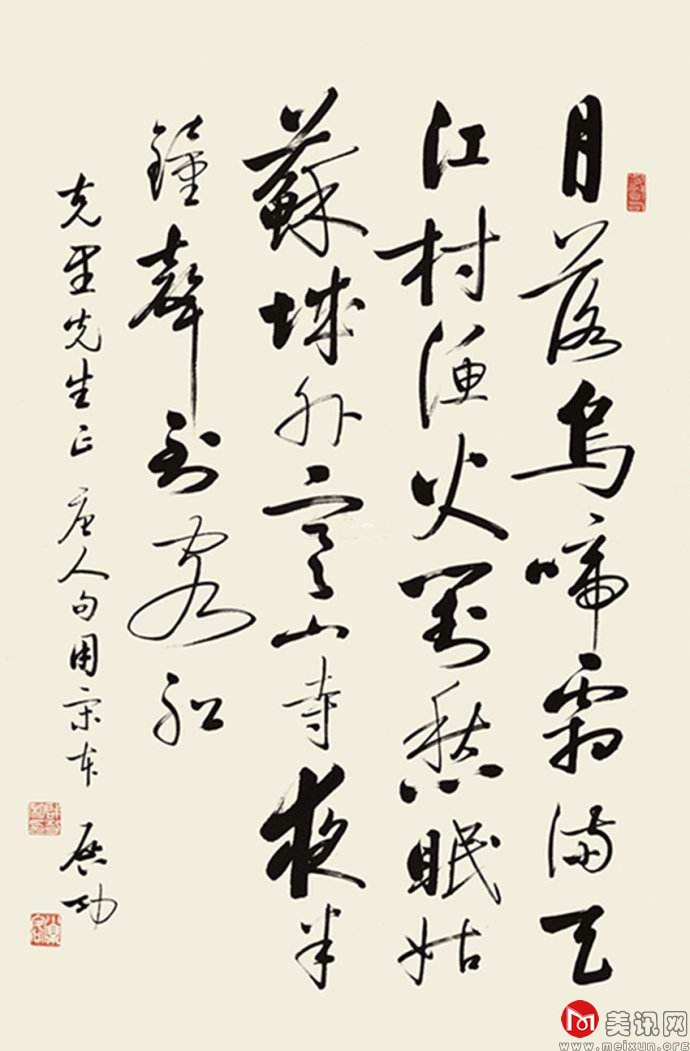 月落烏啼霜滿天
江村漁火對愁眠姑
蘇城外寒山寺夜半
鐘聲到客船
克里先生正 唐人句用宋本
啟功
美讯网
www.meixun.org